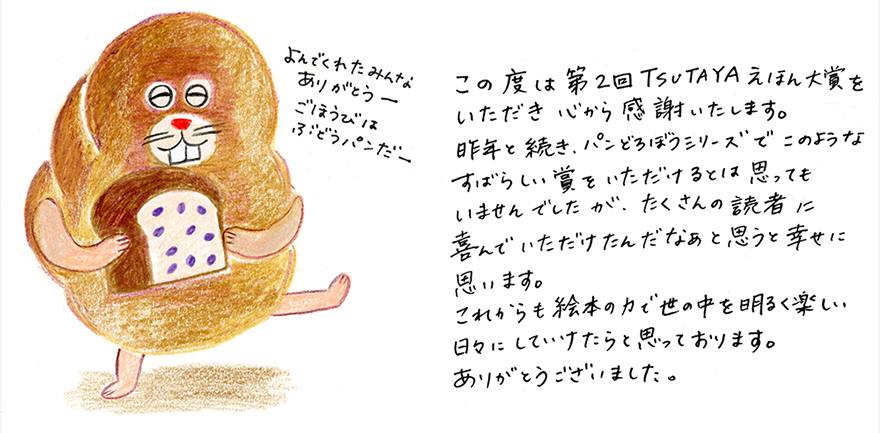 よんでくれたみんな
ありがとうー
ごほうびは
ぶどうパンだー
この度は第2回TSUTAYAえほん大賞を
いただき心から感謝いたします。
昨年と続き、パンどろぼうシリーズでこのような
すばらしい賞をいただけるとは思っても
いませんでしたが、たくさんの読者に
喜んでいただけたんだなぁと思うと幸せに
思います。
これからも絵本の力で世の中を明るく楽しい
日々にしていけたらと思っております。
ありがとうございました。